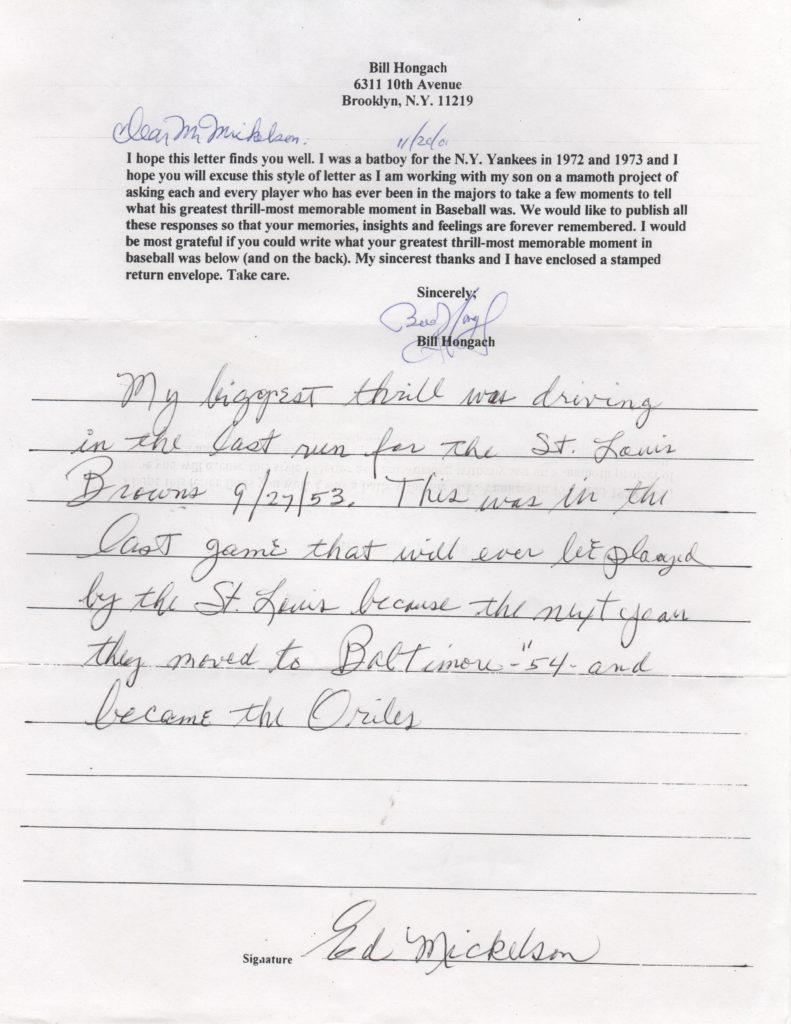 Bill Hongach
6311 10th Avenue
Brooklyn, N.Y. 11219
Dear Mr Mickelson. 11/20/01
I hope this letter finds you well. I was a batboy for the N.Y. Yankees in 1972 and 1973 and I
hope you will excuse this style of letter as I am working with my son on a mammoth project of
asking each and every player who has ever been in the majors to take a few moments to tell
what his greatest thrill-most memorable moment in Baseball was. We would like to publish all
these responses so that your memories, insights and feelings are forever remembered. I would
be most grateful if you could write what your greatest thrill-most memorable moment in
baseball was below (and on the back). My sincerest thanks and I have enclosed a stamped
return envelope. Take care.
Sincerely,
Bill Hongach
My biggest thrill was driving
in the last run for the St. Louis
Browns 9/27/53. This was in the
last game that will ever be played
by the St. Louis because the next year
they moved to Baltimore - "54 - and
became the Oriles
Signature Ed Mickelson